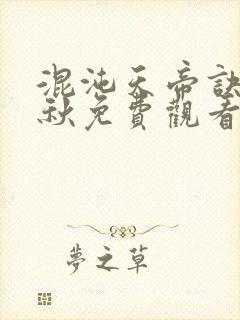 混沌天帝訣
秋免費觀看
夢之草